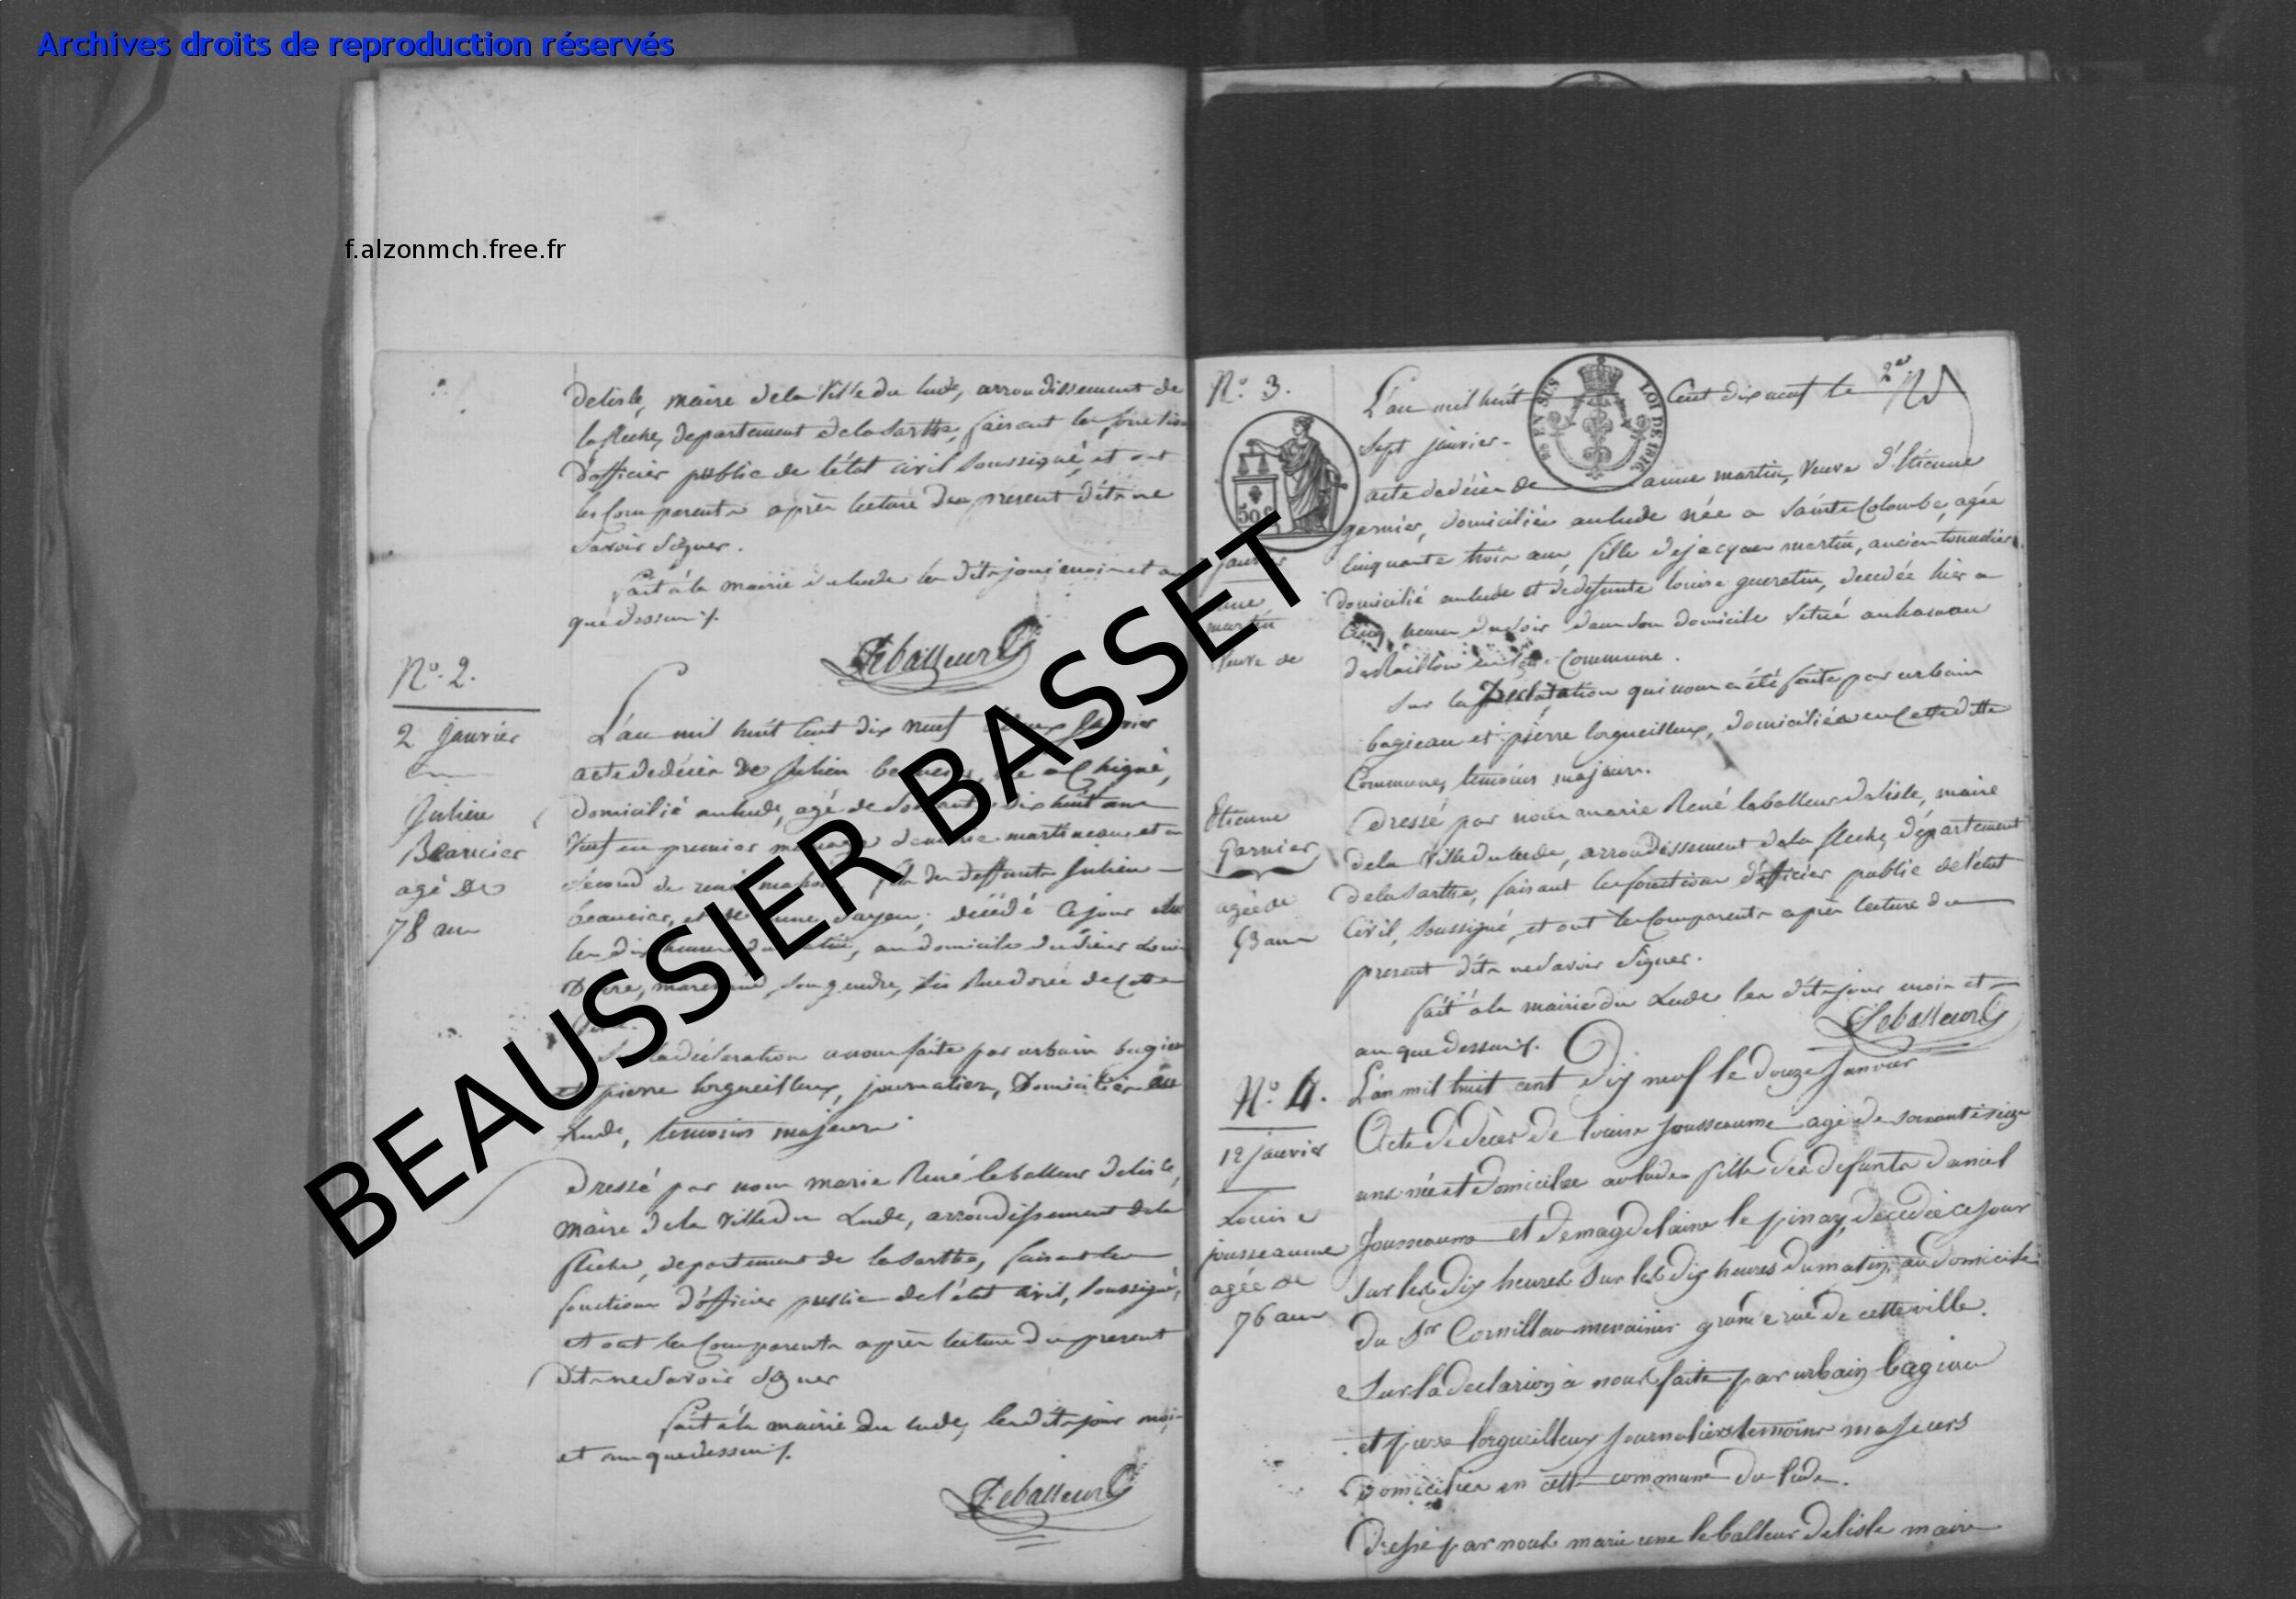 Archives droits de reproduction réservés
f.alzonmch.free.fr
BEAUSSIER BASSET
delisle, maire de la Ville du lude, arrondissement de
la fleche, departement de la Sarthe, faisant les fonctions
d'officier public de l'état civil Soussigné, et ont
les Comparents après lecture du present dits ne
Savoir Signer.
fait à la mairie du lude les dits jour mois et an
que dessus /.
Leballeur
N.º 2.
2 Janvier
Julien
Beaucier
agé de
78 ans
L'an mil huit Cent dix neuf Janvier
acte de décès de Julien Chigné,
domicilié au lude, agé de Soixante dix huit ans
Veuf en premier mariage de marie martineau et en
Second de renée fils de deffunts Julien
beaucier, et de décédé Ce jour
les dix heures du matin, au domicile du Sieur Louis
marchand, Son gendre, Sis Rue dorée de Cette
la déclaration a nous faite par urbain bagieau
et pierre lorgueilleux, journaliers, Domiciliés au
Lude, temoins majeurs
Dressé par nous marie René leballeur delisle,
maire de la Ville du Lude, arrondissement de la
fleche, departement de la Sarthe, faisant les
fonctions d'officier public de l'état Civil, Soussigné,
et ont les Comparents après lecture du present
dits ne Savoir Signer
fait à la mairie du lude, les dits jour mois
et an que dessus /.
Leballeur
N.º 3.
50 c
Janvier
martin
Veuve de
Etienne
Garnier
agée de
53 ans
L'an mil huit Cent dix neuf le
LOI DE 1816
Sept janvier
acte de décès de anne martin, Veuve d'Etienne
garnier, domiciliée au lude née a Sainte Colombe, agée
Cinquante trois ans, fille de jacques martin, ancien tonnelier
domicilié au lude et de defunte louise gueretin, decedée hier a
Cinq heures du Soir dans Son domicile Situé au hameau
Commune.
Sur la Declaration qui nous a été faite par urbain
bagieau et pierre lorgueilleux, domiciliés en Cette ditte
Commune, temoins majeurs.
Dressé par nous marie René leballeur delisle, maire
de la Ville du lude, arrondissement de la fleche, département
de la Sarthe, faisant les fonctions d'officier public de l'état
Civil, Soussigné, et ont les Comparents après lecture du
present dits ne Savoir Signer.
fait à la mairie du Lude les dits jour mois et
an que dessus /.
Leballeur
N.º 4.
12 janvier
Louise
jousseaume
agée de
76 ans
L'an mil huit cent dix neuf le douze Janvier
Acte de décès de louise Jousseaume agé de soixante seize
ans née et domiciliee au lude fille des defunts daniel
Jousseaume et de magdelaine le pinay, decedée ce jour
sur les dix heures sur les dix heures du matin, au domicile
du Sr Cornilleau menuisier grande rue de cette ville.
Sur la declarion à nous faite par urbain bagieau
et pierre lorgueilleux journaliers temoins majeurs
Domicilies en cette commune du lude.
Dressé par nous marie rene leballeur delisle maire